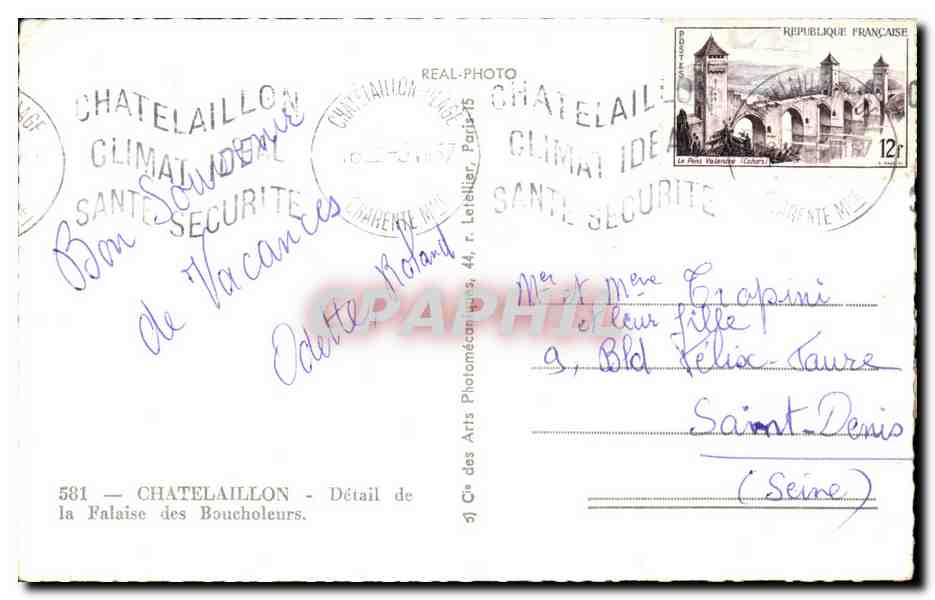 REPUBLIQUE FRANÇAISE
POSTES
12F
Le Pont Valentré (Cahors)
REAL-PHOTO
CHATELAILLON
CLIMAT IDEAL
SANTE SECURITE
CHATELAILLON-PLAGE
57
CHARENTE MME
CHATELAILLON
CLIMAT IDEAL
SANTE SECURITE
CHARENTE MME
Bon Souvenir
de Vacances
Odette, Roland
CPAPHIL
Cie des Arts Photomécaniques, 44, r. Letellier, Paris-15
Mer et Mme Tropini
et leur fille
9, Bld Félix-Faure
Saint-Denis
(Seine)
581 — CHATELAILLON - Détail de
la Falaise des Boucholeurs.